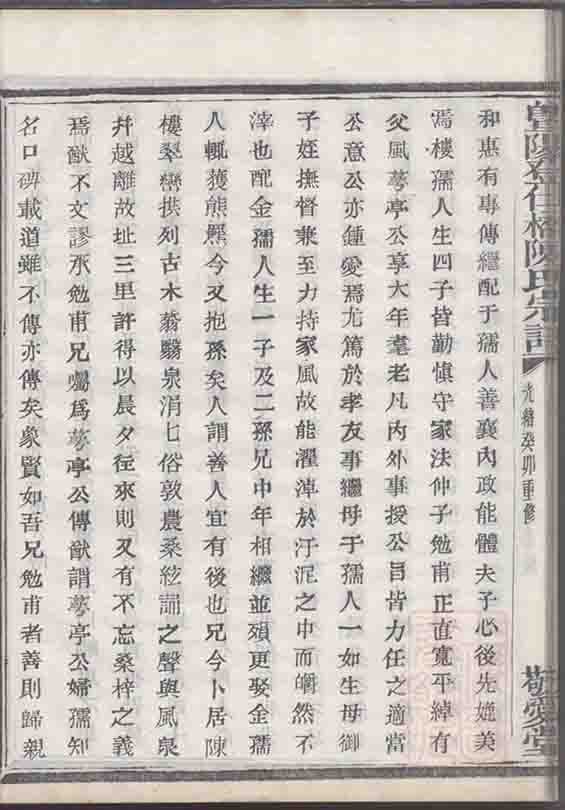 陽仕橋陳氏宗譜 光緒癸卯重修 敬愛堂
和惠有專傳繼配于孺人善襄內政能體夫子心後先媲美
焉樓孺人生四子皆勤慎守家法仲子勉甫正直寬平綽有
父風蕚亭公享大年耄老凡內外事授公旨皆力任之適當
公意公亦鍾愛焉尤篤於孝友事繼母于孺人一如生母御
子姪撫督兼至力持家風故能濯淖於汙泥之中而皭然不
滓也配金孺人生一子及二孫兄中年相繼並殞更娶金孺
人輒獲熊羆今又抱孫矣人謂善人宜有後也兄今卜居陳
樓翠巒拱列古木蓊翳泉涓七俗敦農桑絃誦之聲與風泉
幷越離故址三里許得以晨夕徃來則又有不忘桑梓之義
焉猷不文謬承勉甫兄囑爲蕚亭公傳猷謂蕚亭公婦孺知
名口碑載道雖不傳亦傳矣象賢如吾兄勉甫者善則歸親